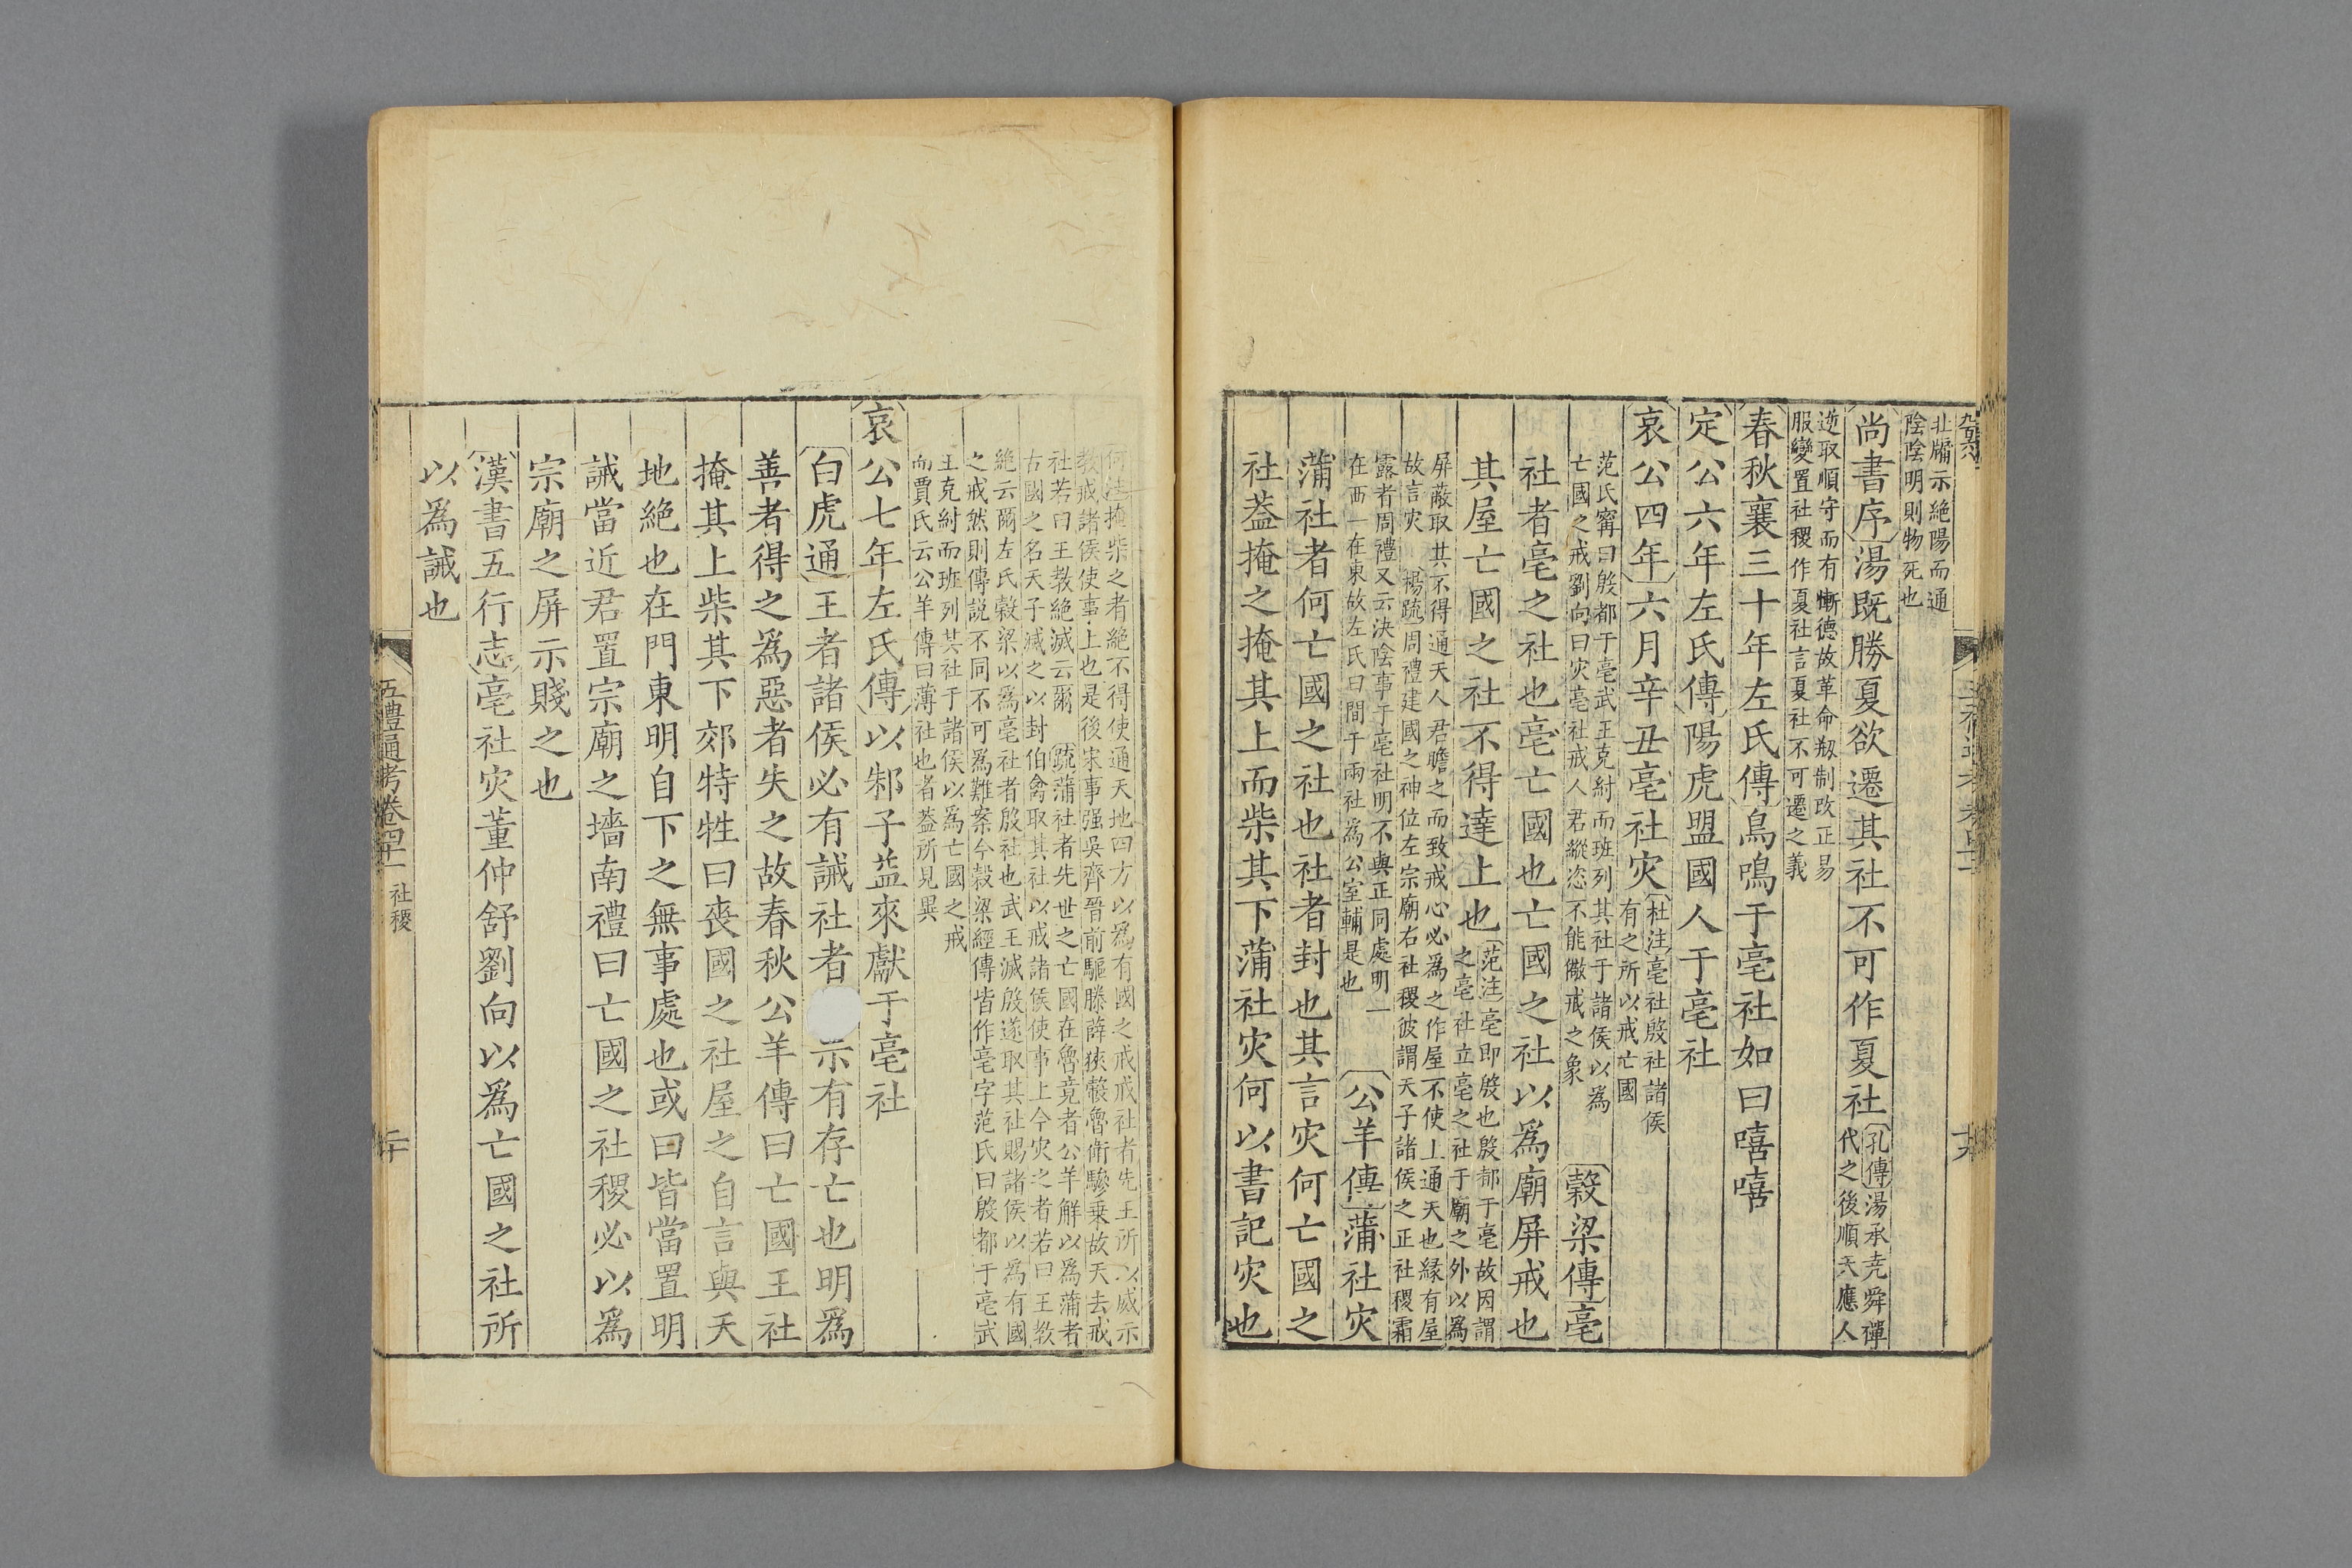 北牖示絶陽而通
陰陰明則物死也
尚書序湯既勝夏欲遷其社不可作夏社孔傳湯承尭舜禪
代之後順天應人
逆取順守而有慚德故革命剏制改正易
服變置社稷作夏社言夏社不可遷之義
春秋襄三十年左氏傳鳥鳴于亳社如曰嘻嘻
定公六年左氏傳陽虎盟國人于亳社
哀公四年六月辛丑亳社灾杜注亳社殷社諸侯
有之所以戒亡國
范氏甯曰殷都于亳武王克紂而班列其社于諸侯以為
亡國之戒劉向曰灾亳社戒人君縱恣不能儆戒之象
穀梁傳亳
社者亳之社也亳亡國也亡國之社以爲廟屏戒也
其屋亡國之社不得達上也范注亳即殷也殷都于亳故因謂
之亳社立亳之社于廟之外以爲
屏蔽取其不得通天人君瞻之而致戒心必爲之作屋不使上通天也緣有屋
故言灾 楊疏周禮建國之神位左宗廟右社稷彼謂天子諸侯之正社稷霜
露者周禮又云決陰事于亳社明不與正同處明一
在西一在東故左氏曰間于兩社爲公室輔是也
公羊傳蒲社灾
蒲社者何亡國之社也社者封也其言灾何亡國之
社葢掩之掩其上而柴其下蒲社灾何以書記灾也
何注掩柴之者絶不得使通天地四方以爲有國之戒戒社者先王所以威示
教戒諸侯使事上也是後宋事强吳齊晉前驅滕薛俠轂魯衛驂乗故天去戒
社若曰王教絶滅云爾 疏蒲社者先世之亡國在魯竟者公羊解以爲蒲者
古國之名天子滅之以封伯禽取其社以戒諸侯使事上今灾之者若曰王教
絶云爾左氏穀梁以爲亳社者殷社也武王滅殷遂取其社賜諸侯以爲有國
之戒然則傳説不同不可爲難案今穀梁經傳皆作亳字范氏曰殷都于亳武
王克紂而班列其社于諸侯以爲亡國之戒
而賈氏云公羊傳曰薄社也者葢所見異
哀公七年左氏傳以邾子益來獻于亳社
白虎通王者諸侯必有誡社者示有存亡也明爲
善者得之爲惡者失之故春秋公羊傳曰亡國王社
掩其上柴其下郊特牲曰喪國之社屋之自言與天
地絶也在門東明自下之無事處也或曰皆當置明
誡當近君置宗廟之墻南禮曰亡國之社稷必以爲
宗廟之屏示賤之也
漢書五行志亳社灾董仲舒劉向以爲亡國之社所
以爲誡也
五禮通考卷四十二 社稷
二十